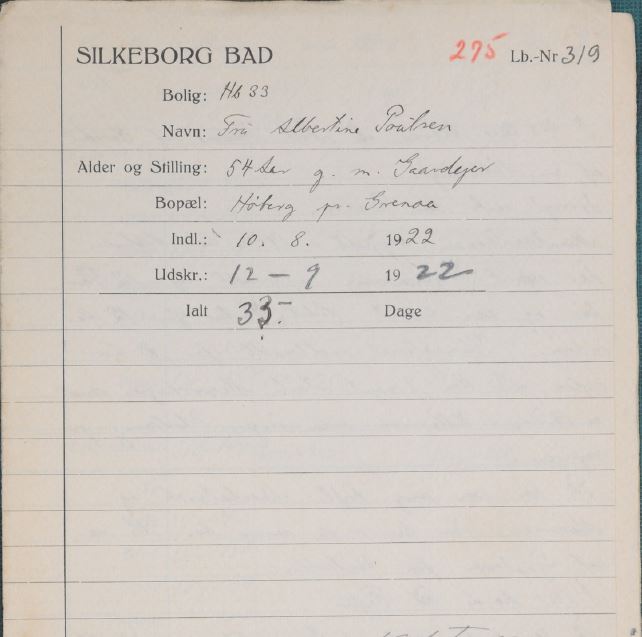 SILKEBORG BAD 275 Lb.-Nr 319
Bolig: Hb 33
Navn: Fru Albertine Poulsen
Alder og Stilling: 54 Aar g. m. Gaardejer
Bopæl: Høbjerg pr. Grenaa
Indl.: 10. 8. 1922
Udskr.: 12 – 9 1922
Ialt 33. Dage